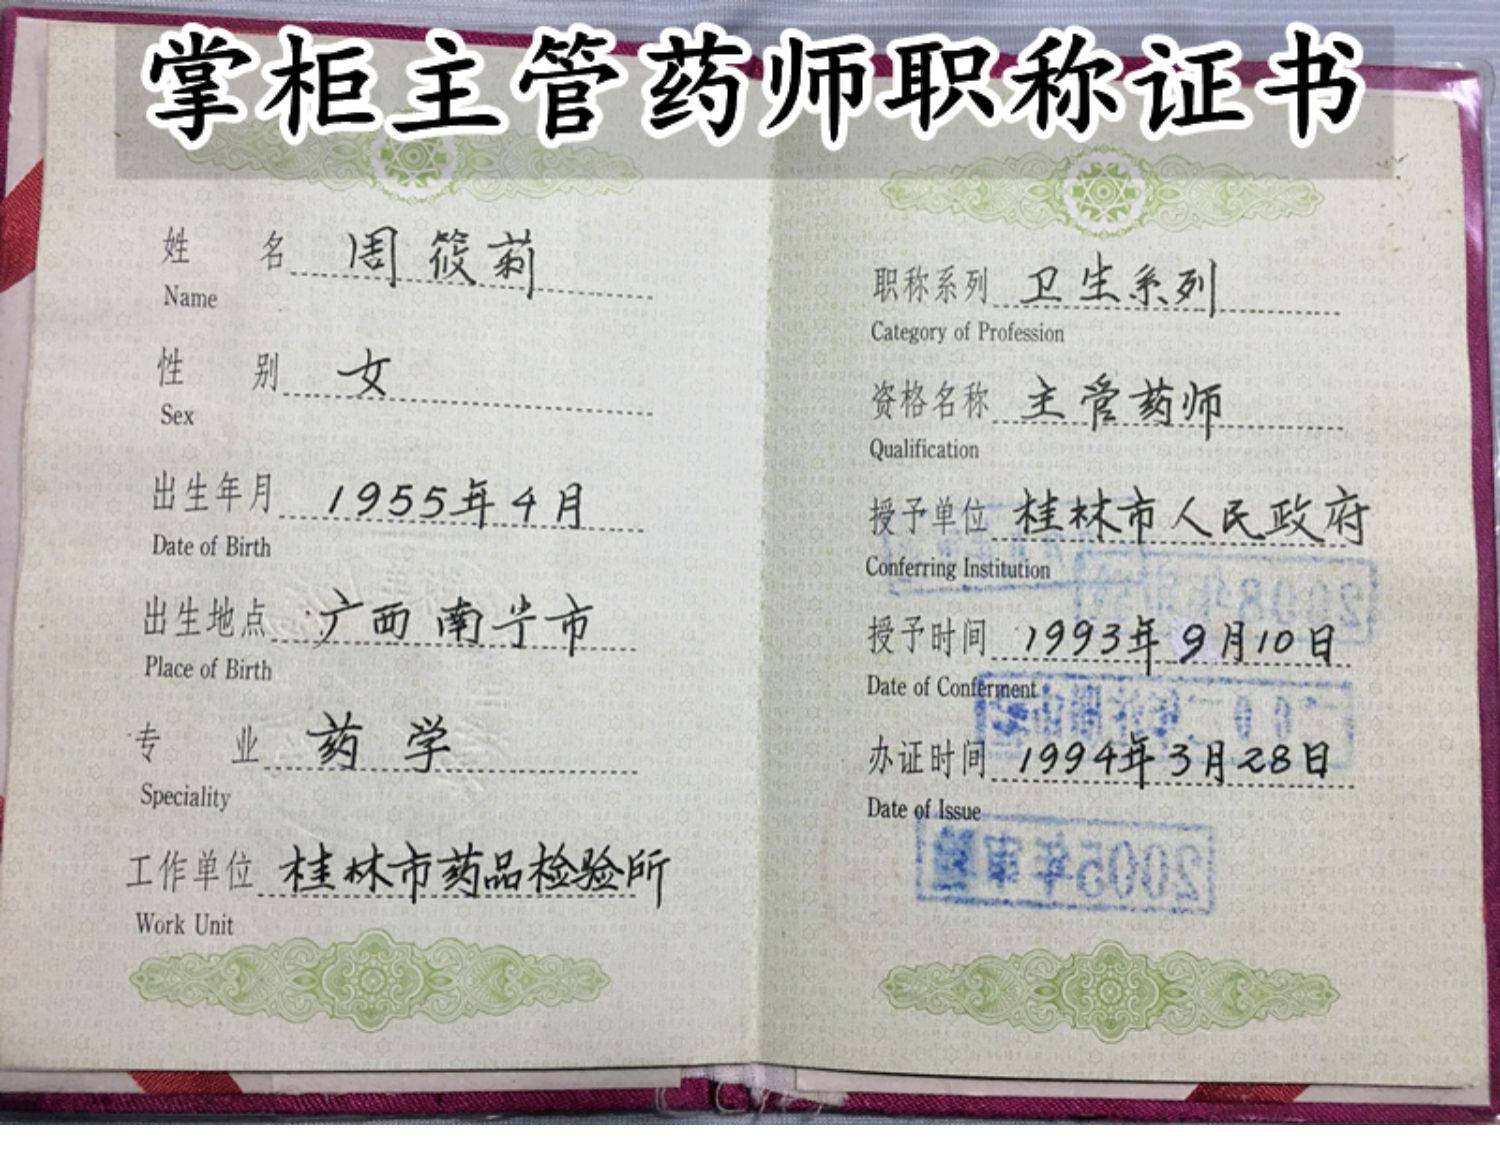 掌柜主管药师职称证书
姓 名 周筱莉
Name
性 别 女
Sex
出生年月 1955年4月
Date of Birth
出生地点 广西南宁市
Place of Birth
专 业 药学
Speciality
工作单位 桂林市药品检验所
Work Unit
职称系列 卫生系列
Category of Profession
资格名称 主管药师
Qualification
授予单位 桂林市人民政府
Conferring Institution
授予时间 1993年9月10日
Date of Conferment
办证时间 1994年3月28日
Date of Issue
2005年审验